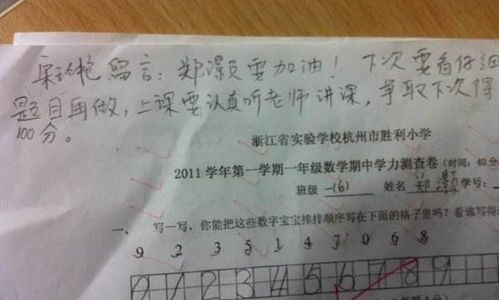 留言：郑灏要加油！下次要看仔细
题目再做，上课要认真听老师讲课，争取下次得
100分。
浙江省实验学校杭州市胜利小学
2011学年第一学期一年级数学期中学力测查卷（时间：40分
班级 一(6) 姓名 郑灏 学号：
一、 写一写，你能把这些数字宝宝排排顺序写在下面的格子里吗？看谁写得
9 2 3 5 1 4 7 0 6 8
0 1 2 3 4 5 6 7 8 9